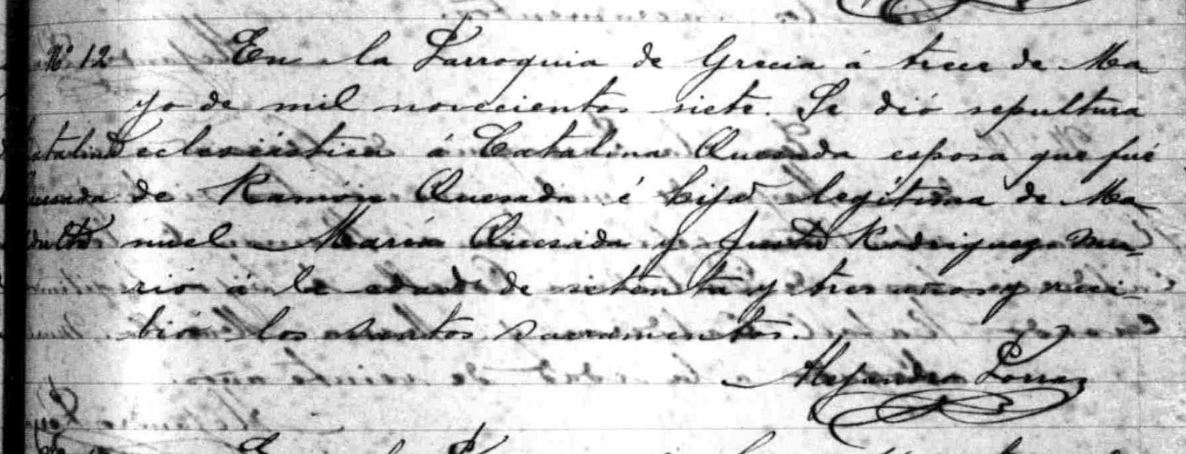 Nº 12 En la Parroquia de Grecia á trece de Ma-
yo de mil novecientos siete. Se dió sepultura
Catalina eclesiástica á Catalina Quesada esposa que fué
Quesada de Ramón Quesada é hija legítima de Ma-
adulta nuel María Quesada y Justa Rodriguez mu-
rió á la edad de setenta y tres años y reci-
bió los santos sacramentos.
Alejandro Porras